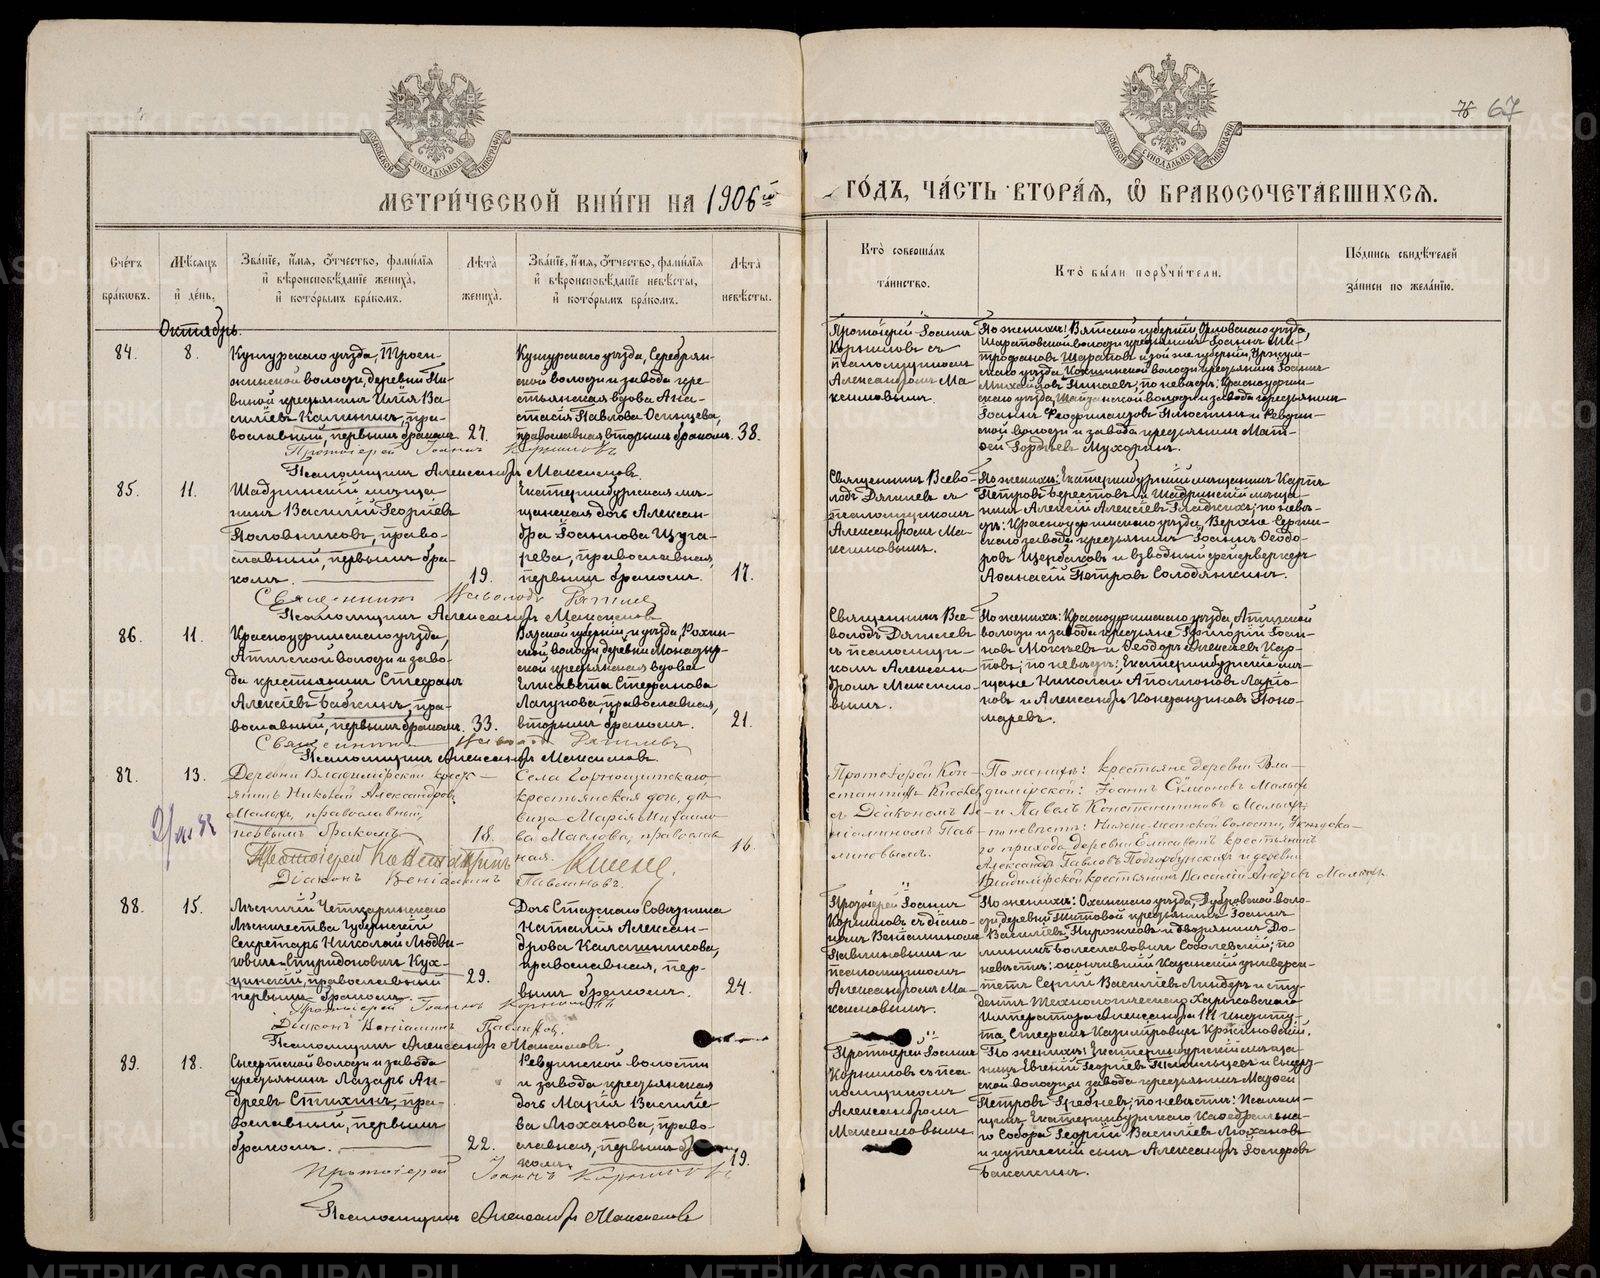 76 67
МОСКОВСКОЙ СѴНОДАЛЬНОЙ ТИПОГРАФІИ
МОСКОВСКОЙ СѴНОДАЛЬНОЙ ТИПОГРАФІИ
МЕТРИ́ЧЕСКОЙ КНИ́ГИ НА 1906й ГО́ДЪ, ЧА́СТЬ ВТОРА́Я, Ѽ БРАКОСОЧЕТА́ВШИХСЯ.
Сче́тъ бра́ковъ.
Мѣ́сяцъ и҆ де́нь.
Зва́нїе, и҆́мя, ѻ҆́тчество, фами́лїя
и҆ вѣроисповѣ́данїе жениха̀,
и҆ кото́рымъ бра́комъ.
Лѣ́та жениха̀.
Зва́нїе, и҆́мя, ѻ҆́тчество, фами́лїя
и҆ вѣроисповѣ́данїе невѣ́сты,
и҆ кото́рымъ бра́комъ.
Лѣ́та невѣ́сты.
Кто̀ соверша́лъ
та́инство.
Кто̀ бы́ли поручи́тели.
По́дпись свидѣ́телей
за́писи по жела́нїю.
Октябрь.
84.
8.
Кунгурскаго уѣзда, Троель-
жинской волости, деревни Пи-
виной крестьянинъ Илія Ва-
силіевъ Калининъ, пра-
вославный, первымъ бракомъ.
27.
Кунгурскаго уѣзда, Серебрян-
ской волости и завода кре-
стьянская вдова Ана-
стасія Павлова Осинцева,
православная, вторымъ бракомъ.
38.
Протоіерей Іоаннъ
Корниловъ съ
псаломщикомъ
Александромъ Ма-
ксимовымъ.
По женихѣ: Вятской губерніи, Орловскаго уѣзда,
волости крестьянинъ Іоаннъ Ми-
трофановъ Шараповъ и той же губерніи, Уржум-
скаго уѣзда, волости крестьянинъ Іоаннъ
Михайловъ по невѣстѣ: Красноуфим-
скаго уѣзда, волости и завода крестьянинъ
Іоаннъ Феофилактовъ Плюснинъ и Ревдин-
ской волости и завода крестьянинъ Мат-
ѳей Гордѣевъ Мухоринъ.
Протоіерей Іоаннъ Корниловъ
Псаломщикъ Александръ Максимовъ.
85.
11.
Шадринскій мѣща-
нинъ Василій Георгіевъ
Половниковъ, право-
славный, первымъ бра-
комъ.
19.
Екатеринбургская мѣ-
щанская дочь Алексан-
дра Іоаннова Цуга-
рева, православная,
первымъ бракомъ.
17.
Священникъ Всево-
лодъ съ
псаломщикомъ
Александромъ Ма-
ксимовымъ.
По женихѣ: Екатеринбургскій мѣщанинъ Карпъ
Петровъ Берестовъ и Шадринскій мѣща-
нинъ Алексій Алексіевъ Гладкихъ; по невѣс-
тѣ: Красноуфимскаго уѣзда, Верхне-Сергин-
скаго завода крестьянинъ Іоаннъ Ѳеодо-
ровъ Щербаковъ и взводный фейерверкеръ
Аѳанасій Петровъ Солодянкинъ.
Священникъ Всеволодъ
Псаломщикъ Александръ Максимовъ
86.
11.
Красноуфимскаго уѣзда,
Атигской волости и заво-
да крестьянинъ Стефанъ
Алексіевъ Бабкинъ, пра-
вославный, первымъ бракомъ.
33.
Вятской губерніи и уѣзда,
ской волости деревни
ской крестьянская вдова
Елисавета Стефанова
Лагунова, православная,
вторымъ бракомъ.
21.
Священникъ Все-
володъ
съ псаломщи-
комъ Алексан-
дромъ Максимо-
вымъ.
По женихѣ: Красноуфимскаго уѣзда, Атигской
волости и завода крестьяне Григорій Іоан-
новъ Мокѣевъ и Ѳеодоръ Алексіевъ Кар-
повъ; по невѣстѣ: Екатеринбургскіе мѣ-
щане Николай Аполлоновъ Ларіо-
новъ и Александръ Поно-
маревъ.
Священникъ Всеволодъ
Псаломщикъ Александръ Максимовъ.
87.
13.
Деревни Владимірской кресть-
янинъ Николай Александровъ
Малыхъ, православный,
первымъ бракомъ
18.
Села Горнощитскаго
крестьянская дочь, дѣ-
вица Марія Михаило-
ва Маслова, православ-
ная.
16.
Протоіерей Кон-
стантинъ
съ Діакономъ Ве-
ніаминомъ Пав-
линовымъ.
По женихѣ: крестьяне деревни Вла-
димірской: Іоаннъ Сумеоновъ Малыхъ
и Павелъ Константиновъ Малыхъ;
по невѣстѣ: волости,
го прихода деревни Елисаветъ крестьянинъ
Александръ Павловъ Подгорбунскихъ и деревни
Владимірской крестьянинъ Василій Андреевъ Малыхъ.
Протоіерей Константинъ
Діаконъ Веніаминъ Павлиновъ.
88.
15.
Лѣсничій
Лѣсничества Губернскій
Секретарь Николай Людви-
говичъ-Спиридоновичъ Кух-
цинскій, православный
первымъ бракомъ.
29.
Дочь Статскаго Совѣтника
Наталія Алексан-
дрова Калашникова,
православная, пер-
вымъ бракомъ.
24.
Протоіерей Іоаннъ
Корниловъ съ діако-
номъ Веніаминомъ
Павлиновымъ и
псаломщикомъ
Александромъ Ма-
ксимовымъ.
По женихѣ: Оханскаго уѣзда, Дубровской воло-
сти, деревни Титовой крестьянинъ Іоаннъ
Васильевъ Пирожковъ и дворянинъ До-
миникъ Болеславовичъ Соболевскій; по
невѣстѣ: окончившій Казанскій универси-
тетъ Сергій Васильевъ Линдеръ и сту-
дентъ Технологическаго Харьковскаго
Императора Александра III Институ-
та, Стефанъ Казиміровичъ
Протоіерей Іоаннъ Корниловъ
Діаконъ Веніаминъ Павлиновъ.
Псаломщикъ Александръ Максимовъ.
89.
18.
Сысертской волости и завода
крестьянинъ Лазарь Ан-
дреевъ Стихинъ, пра-
вославный, первымъ
бракомъ.
22.
Ревдинской волости
и завода крестьянская
дочь Марія Василіе-
ва Моханова, право-
славная, первымъ бра-
комъ.
19.
Протоіерей Іоаннъ
Корниловъ съ пса-
ломщикомъ
Александромъ
Максимовымъ
По женихѣ: Екатеринбургскій мѣща-
нинъ Евгеній Георгіевъ и Сысерт-
ской волости и завода крестьянинъ Матѳей
Петровъ по невѣстѣ: Псалом-
щикъ Екатеринбургскаго Каѳедральна-
го Собора Георгій Василіевъ Мохановъ
и купеческій сынъ Александръ Исидоровъ
Бакакинъ.
Протоіерей Іоаннъ Корниловъ
Псаломщикъ Александръ Максимовъ
METRIKI.GASO-URAL.RU